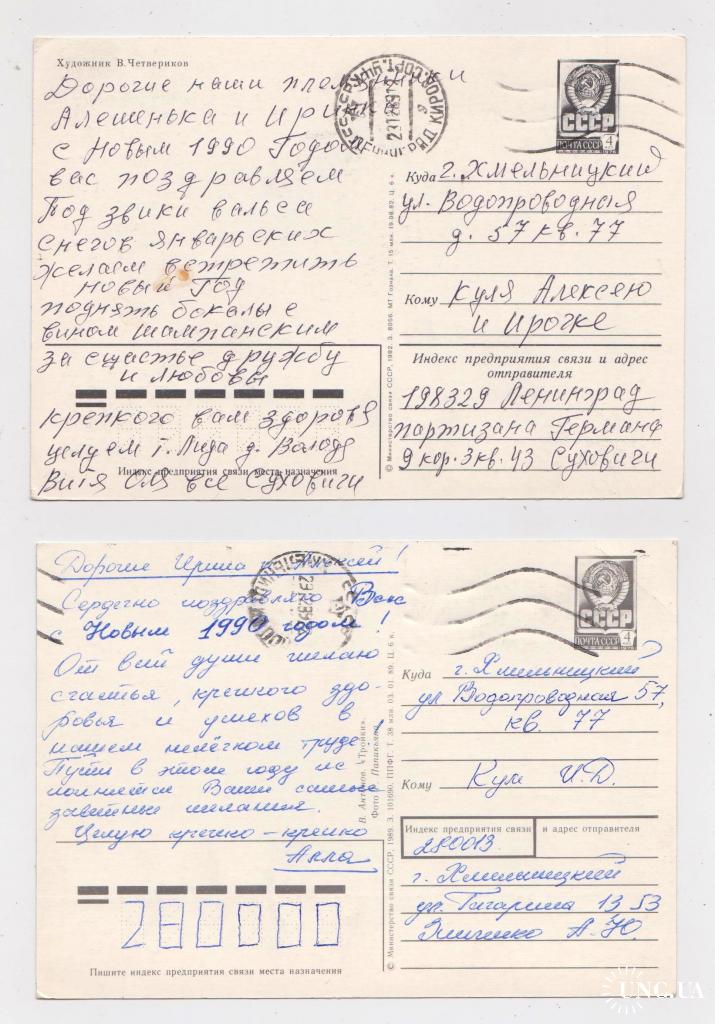 Художник В.Четвериков
Дорогие наши племянники
Алешенька и Ириночка
с Новым 1990 Годом
вас поздравляем
Под звики вальса
снегов январьских
желаем встретить
Новый Год
поднять бокалы с
вином шампанским
за счастье дружбу
и любовы
крепкого вам здоровя
целуем т. Лида д. Володя
Витя Оля все Суховичи
Индекс предприятия связи места назначения
© Министерство связи СССР, 1982. З. 8056. МТ Гознака. Т. 15 млн. 19.08.82. Ц. 6 к.
СССР
ПОЧТА СССР 4
Куда г. Хмельницкий
ул. Водопроводная
д. 57 кв. 77
Кому Куля Алексею
и Ирочке
Индекс предприятия связи и адрес
отправителя
198329 Ленинград
партизана Германа
9 кор. 3 кв. 43 Суховичи
Дорогие Ирина и Алексей!
Сердечно поздравляю Вас
с Новым 1990 годом!
От всей души желаю
счастья, крепкого здо-
ровья и успехов в
нашем нелёгком труде.
Пусть в этом году ис
полнятся Ваши самые
заветные желания.
Целую крепко-крепко
Алла
280000
Пишите индекс предприятия связи места назначения
В. Антонов. «Тройки»
© Министерство связи СССР, 1989. З. 101690. ППФГ. Т. 38 млн. 03. 01. 89. Ц. 6 к.
СССР
ПОЧТА СССР 4
Куда г. Хмельницкий
ул Водопроводная 57,
кв. 77
Кому Кули И.Д.
Индекс предприятия связи и адрес отправителя
280013
г. Хмельницкий
ул. Гагарина 13 53
А. Ю.
UNC.UA